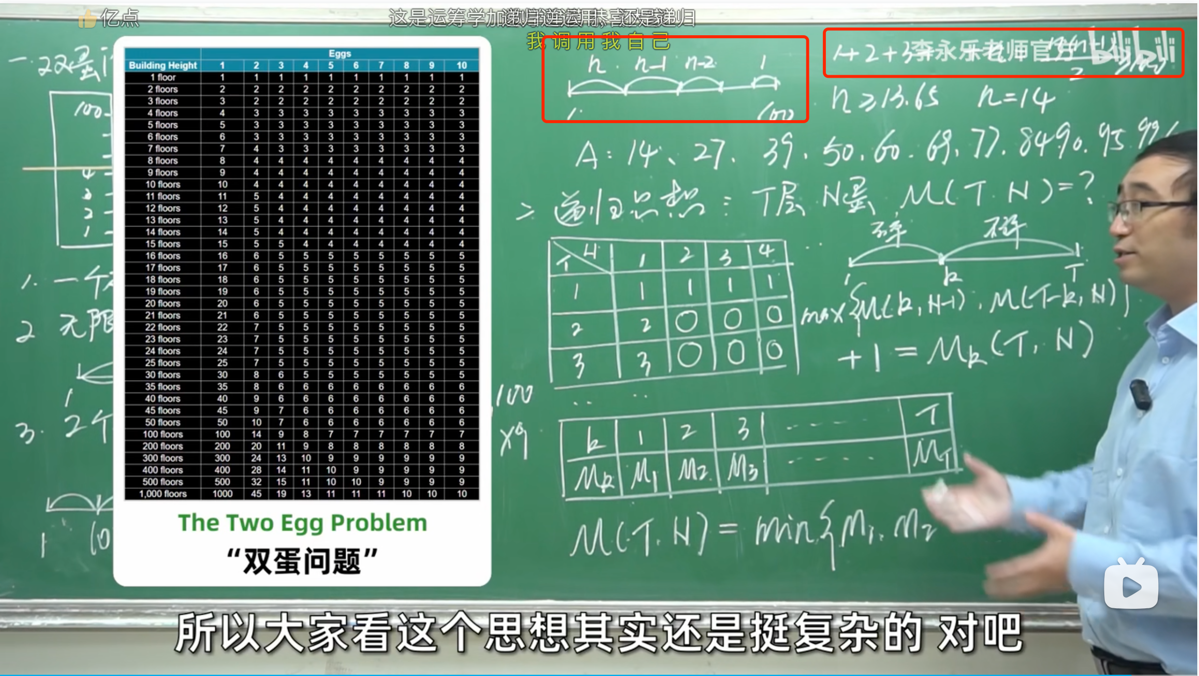 亿点
我调用我自己
Eggs
Building Height 1 2 3 4 5 6 7 8 9 10
1 floor 1 1 1 1 1 1 1 1 1 1
2 floors 2 2 2 2 2 2 2 2 2 2
3 floors 3 2 2 2 2 2 2 2 2 2
4 floors 4 3 3 3 3 3 3 3 3 3
5 floors 5 3 3 3 3 3 3 3 3 3
6 floors 6 3 3 3 3 3 3 3 3 3
7 floors 7 4 3 3 3 3 3 3 3 3
8 floors 8 4 4 4 4 4 4 4 4 4
9 floors 9 4 4 4 4 4 4 4 4 4
10 floors 10 4 4 4 4 4 4 4 4 4
11 floors 11 5 4 4 4 4 4 4 4 4
12 floors 12 5 4 4 4 4 4 4 4 4
13 floors 13 5 4 4 4 4 4 4 4 4
14 floors 14 5 4 4 4 4 4 4 4 4
15 floors 15 5 5 4 4 4 4 4 4 4
16 floors 16 6 5 5 5 5 5 5 5 5
17 floors 17 6 5 5 5 5 5 5 5 5
18 floors 18 6 5 5 5 5 5 5 5 5
19 floors 19 6 5 5 5 5 5 5 5 5
20 floors 20 6 5 5 5 5 5 5 5 5
21 floors 21 6 5 5 5 5 5 5 5 5
22 floors 22 7 5 5 5 5 5 5 5 5
23 floors 23 7 5 5 5 5 5 5 5 5
24 floors 24 7 5 5 5 5 5 5 5 5
25 floors 25 7 5 5 5 5 5 5 5 5
30 floors 30 8 6 5 5 5 5 5 5 5
35 floors 35 8 6 6 6 6 6 6 6 6
40 floors 40 9 6 6 6 6 6 6 6 6
45 floors 45 9 7 6 6 6 6 6 6 6
50 floors 50 10 7 6 6 6 6 6 6 6
100 floors 100 14 9 8 7 7 7 7 7 7
200 floors 200 20 11 9 8 8 8 8 8 8
300 floors 300 24 13 10 9 9 9 9 9 9
400 floors 400 28 14 11 10 9 9 9 9 9
500 floors 500 32 15 11 10 10 9 9 9 9
1,000 floors 1000 45 19 13 11 11 11 10 10 10
The Two Egg Problem
“双蛋问题”
n n-1 n-2 1
1 100
1+2+3
李永乐老师官方
bilibili
n≥13.65 n=14
A: 14、27、39、50、60、69、77、84、90、95、99
递归思想: T层 N蛋 M(T.N)=?
碎 不碎
1 k T
T N 1 2 3 4
1 1 1 1 1
2 2 0 0 0
3 3 0 0 0
max{M(k,N-1), M(T-k,N)}
+1=Mk(T,N)
100
x9
k 1 2 3 ----- T
Mk M1 M2 M3 ----- MT
M(T.N)=min{M1.M2
1.一个
2 无限
3.2个
所以大家看这个思想其实还是挺复杂的 对吧